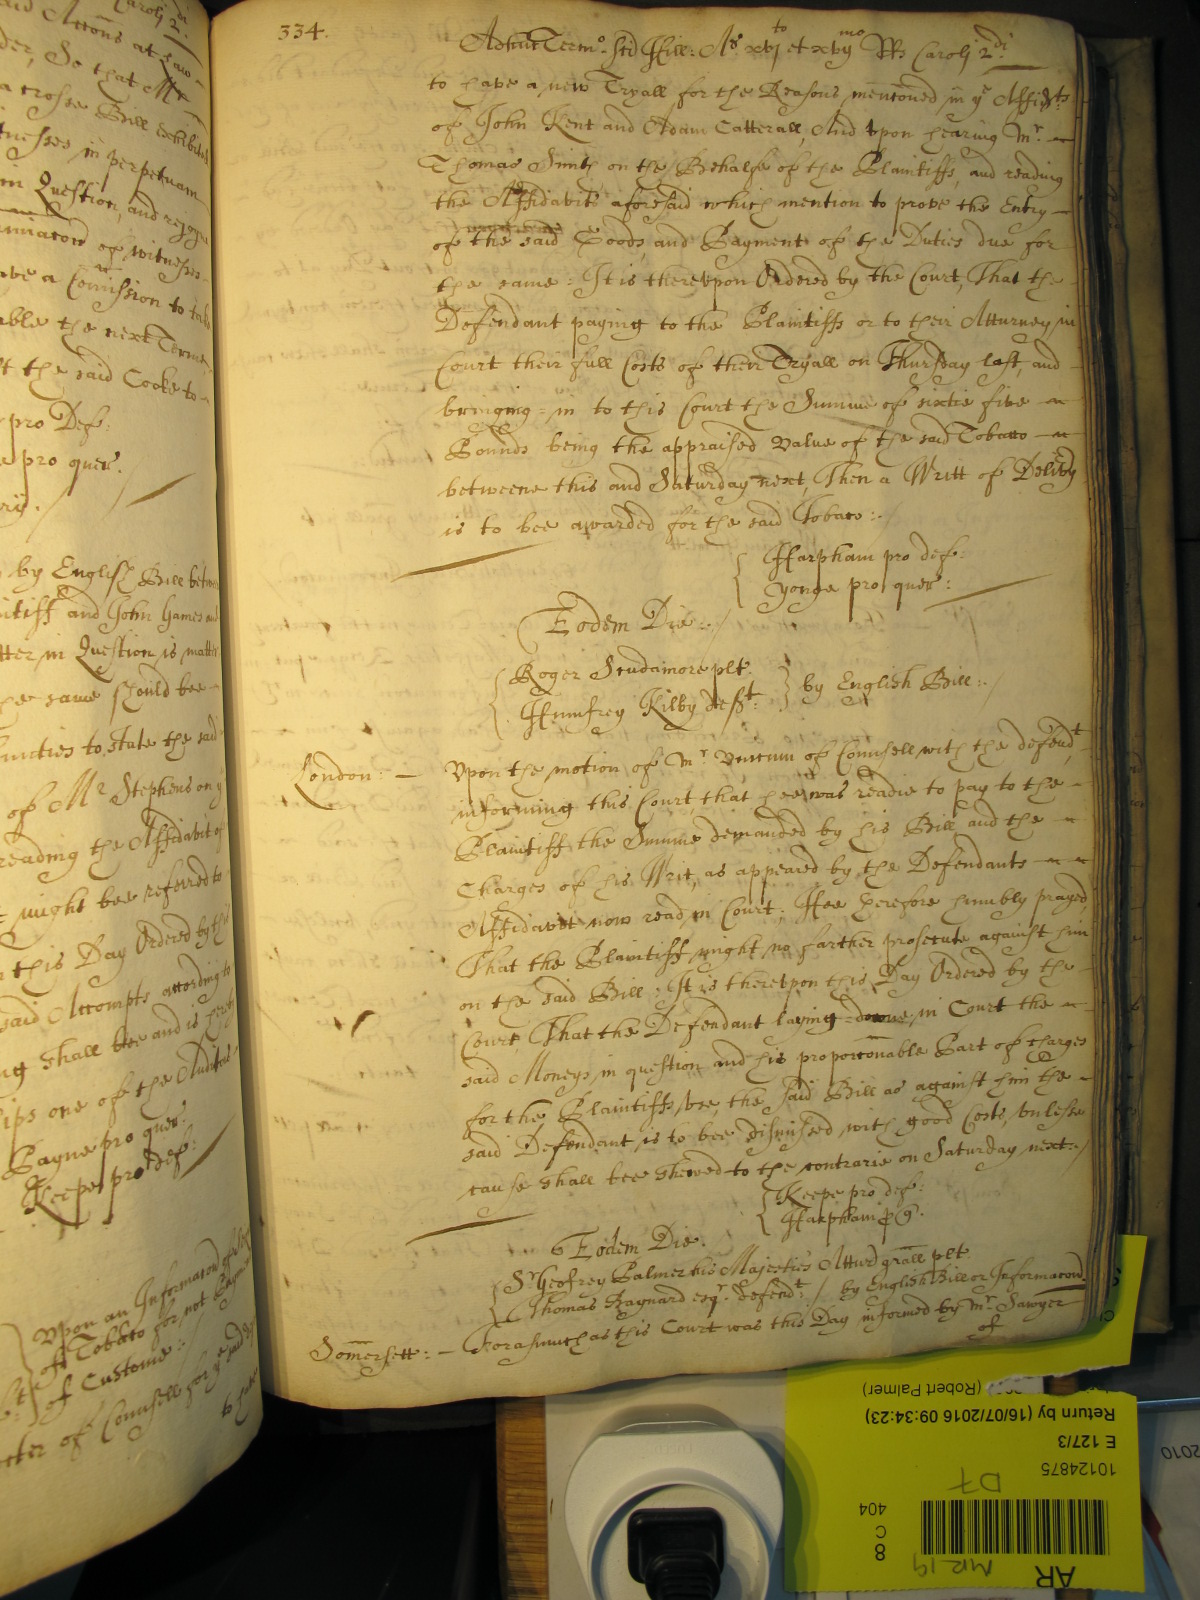 Caroli 2.
said Attorns at
So that
a crosse Bill exhibited
witnesses in perpetuam
in Question, and rejoyne
of witnesses
have a Comission to take
able the next Terme
the said Cooke to
pro Def:
pro quer.
by English Bill betweene
and John James and
matter in Question is matter
the same should bee
to state the said
of Mr Stephens on
reading the Affidavit of
might bee referred to
this Day Ordered by the
said Accompts according to
shall bee and is hereby
one of the Auditors
Payne pro quer.
Keepe pro def:
Upon an Informacon
of Tobacco for not
of Custome
of Counsell for ye said
334.
Adhuc Termo. Sci Hill: Ao. xvj to et xvij mo Rs Caroli 2 di
to have a new Tryall for the Reasons menconed in ye Affidts
of John Kent and Adam Catterall, And upon hearing Mr.
Thomas Smith on the Behalfe of the Plaintiffs, and reading
the Affidavits aforesaid which mention to prove the Entry
of the said Goods, and Payment of the Duties due for
the same: It is thereupon Ordered by the Court, That the
Defendant paying to the Plaintiffs or to their Atturney in
Court their full Costs of their Tryall on Thursday last, and
bringing in to this Court the Summe of sixtie five
Pounds being the appraised value of the said Tobacco
betweene this and Saturday next, Then a Writt of Delivy
is to bee awarded for the said Tobaco:
Harpham pro def:
Yonge pro quer:
Eodem Die:
Roger Scudamore plt.
Humfrey Kilby defft:
by English Bill:
London: Upon the motion of Mr of Counsell with the defendt
informing this Court that hee was readie to pay to the
Plaintiff the Summe demanded by his Bill and the
Charges of his Writ, as appeared by the Defendants
Affidavit now read in Court: Hee therefore humbly prayed,
That the Plaintiff might no farther prosecute against him
on the said Bill: It is thereupon this Day Ordered by the
Court That the Defendant laying downe in Court the
said Moneys in question and his proporconable Part of charges
for the Plaintiffs use, the said Bill as against him the
said Defendant is to bee dismissed with good Costs, unlesse
cause shall bee shewed to the contrarie on Saturday next:
Keepe pro def:
Harpham p q.
Eodem Die.
Sr Geofrey Palmer his Majesties Atturn grall plt.
Thomas Baynard esqr. defendt: by English Bill or Informacon
Somersett: Forasmuch as this Court was this Day informed by Mr. Sawyer
of
(Robert Palmer)
Return by (16/07/2016 09:34:23)
E 127/3
10124875
D7
404
C
8
MR19
AR
2010